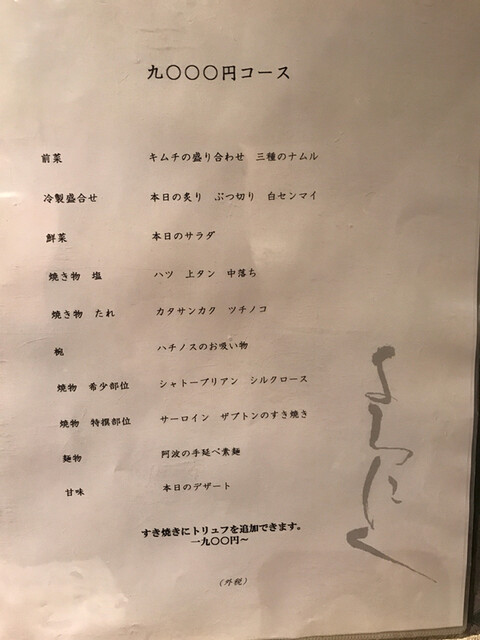 九〇〇〇円コース
前菜 キムチの盛り合わせ 三種のナムル
冷製盛合せ 本日の炙り ぶつ切り 白センマイ
鮮菜 本日のサラダ
焼き物 塩 ハツ 上タン 中落ち
焼き物 たれ カタサンカク ツチノコ
椀 ハチノスのお吸い物
焼物 希少部位 シャトーブリアン シルクロース
焼物 特撰部位 サーロイン ザブトンのすき焼き
麺物 阿波の手延べ素麺
甘味 本日のデザート
すき焼きにトリュフを追加できます。
一九〇〇円～
(外税)
よろにく